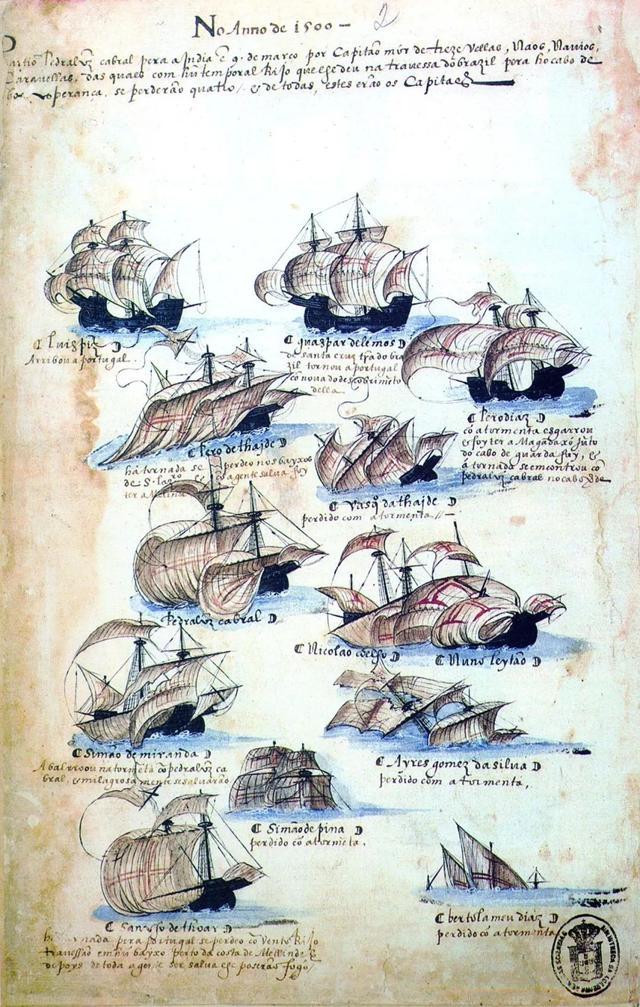 No Anno de 1500 – 2
Partio Pedraluz cabral pera a India é 9. de março por Capitão mór de treze Vellas, Naos, Navios,
Caravellas, das quaes com hũ temporal Rijo que lhe deu na travessa do brazil pera ho cabo de
boa esperança, se perderão quatro / & de todas, estes erão os Capitaẽs
Luis piz
Arribou a portugal.
guaspar de lemos
de santa cruz trã do bra
zil tornou a portugal
có nova do descobrimẽto
della.
Pero diaz
có a tormenta esgarrou
& foy ter a Magadaxó juto
do cabo de guarda fuy, &
á tornada se encontrou có
pedraluz cabral no cabo
Pero de thaide
há tornada se perdeo nos bayxos
de S. lazo & có a gente salva foy
ter a Melinde
Vasq da thaide
perdido com a tormenta
Pedraluz cabral
Nicolao coelho
Nuno leytão
Simão de miranda
Abalrroou na tormẽta có pedraluz ca
bral, & milagrosa mente se salvarão
Ayres gomez da silva
perdido com a tormenta,
Simão de pina
perdido có a tormẽta,
Sancho de thoar
tornada pera Portugal se perdeo có Vento Rijo
travessão em hũ bayxo perto da costa de Melinde &
depoys de toda a gente ser salva lhe poserão fogo
bertolameu diaz
perdido có a tormenta